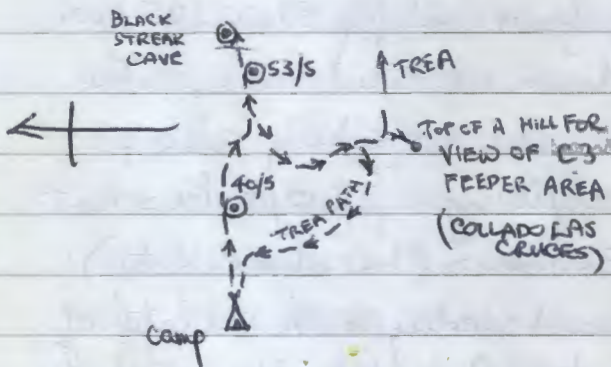 BLACK
STREAK
CAVE
53/5
TREA
TOP OF A HILL FOR
VIEW OF C3
FEEDER AREA
(COLLADO LAS
CRUCES)
40/5
TREA PATH
Camp